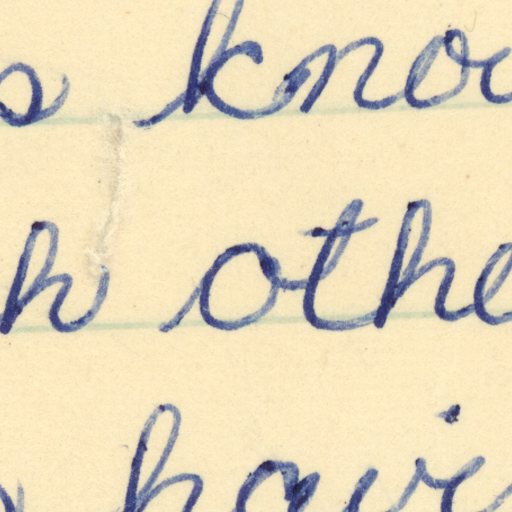 s kno
h othe
havi